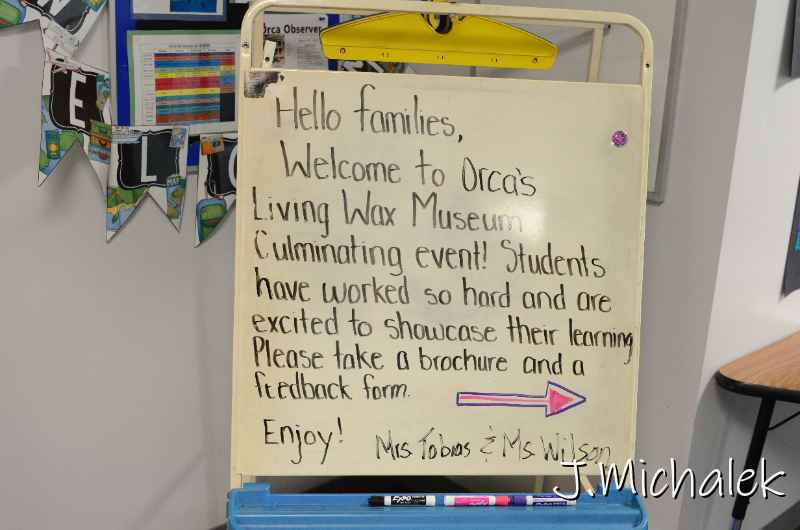 Orca Observer
E
L
Hello families,
Welcome to Orca's
Living Wax Museum
Culminating event! Students
have worked so hard and are
excited to showcase their learning
Please take a brochure and a
feedback form.
Enjoy! Mrs. Tobias & Ms. Wilson
EXPO
J.Michalek